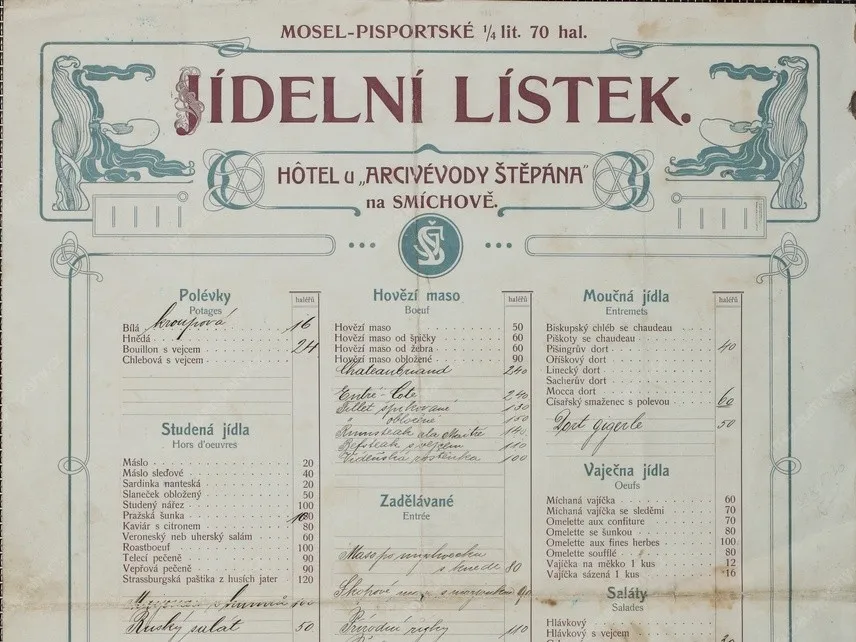 MOSEL-PISPORTSKÉ ¼ lit. 70 hal.
JÍDELNÍ LÍSTEK.
HÔTEL u „ARCIVÉVODY ŠTĚPÁNA"
na SMÍCHOVĚ.
Polévky
Potages
haléřů
Bílá kroupová 16
Hnědá
Bouillon s vejcem 24
Chlebová s vejcem
Studená jídla
Hors d'oeuvres
Máslo 20
Máslo sleďové 40
Sardinka nanteská 20
Slaneček obložený 50
Studený nářez 100
Pražská šunka
Kaviár s citronem 80
Veroneský neb uherský salám 60
Roastboeuf 100
Telecí pečeně 90
Vepřová pečeně 90
Strassburgská paštika z husích jater 120
Ruský salát 50
Hovězí maso
Boeuf
haléřů
Hovězí maso 50
Hovězí maso od špičky 60
Hovězí maso od žebra 60
Hovězí maso obložené 90
Chateaubriand 240
Entré-Cote 240
Fillet špikované 150
" obložené 150
Rumsteak ala Maitre 140
Befsteak s vejcem 110
Vídeňská roštěnka 100
Zadělávané
Entrée
Maso po myslivecku
s knedl 80
Skopové 90
Přírodní 110
Moučná jídla
Entremets
haléřů
Biskupský chléb se chaudeau
Piškoty se chaudeau
Pišingrův dort 40
Oříškový dort
Linecký dort
Sacherův dort
Mocca dort
Císařský smaženec s polevou 60
Dort gigerle 50
Vaječna jídla
Oeufs
Míchaná vajíčka 60
Míchaná vajíčka se sleděmi 70
Omelette aux confiture 70
Omelette se šunkou 80
Omelette aux fines herbes 100
Omelette soufflé 80
Vajíčka na měkko 1 kus 12
Vajíčka sázená 1 kus 16
Saláty
Salades
Hlávkový
Hlávkový s vejcem